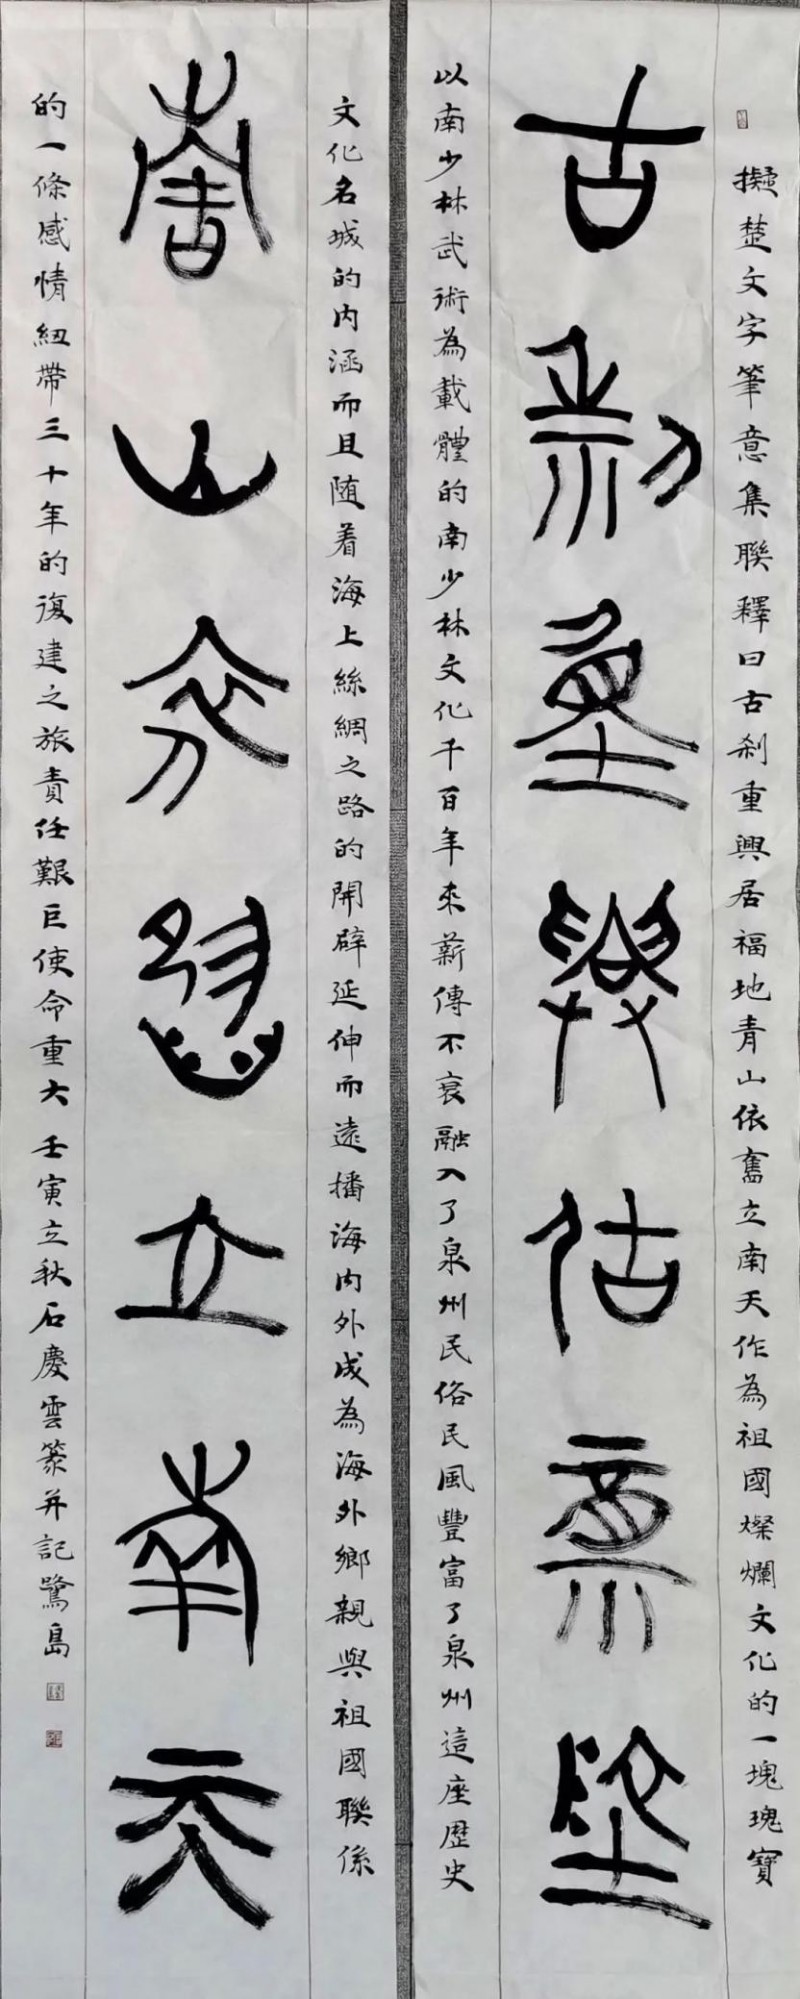 擬楚文字筆意集聯釋曰古刹重興居福地青山依舊立南天作為祖國燦爛文化的一塊瑰寶
古刹重興居福地
以南少林武術為載體的南少林文化千百年來薪傳不衰融入了泉州民俗民風豐富了泉州這座歷史
文化名城的内涵而且随着海上絲綢之路的開辟延伸而遠播海内外成為海外鄉親與祖國聯係
青山依舊立南天
的一條感情紐帶三十年的復建之旅責任艱巨使命重大壬寅立秋石慶雲篆并記鷺島